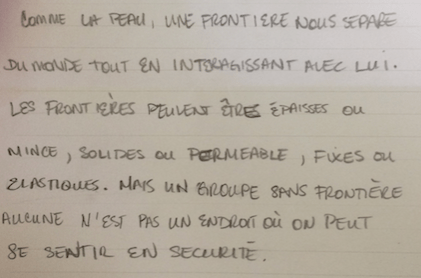 COMME LA PEAU, UNE FRONTIERE NOUS SEPARE
DU MONDE TOUT EN INTERAGISSANT AVEC LUI.
LES FRONTIÈRES PEUVENT ÊTRE ÉPAISSES OU
MINCE, SOLIDES OU PERMEABLE, FIXES OU
ELASTIQUES. MAIS UN GROUPE SANS FRONTIÈRE
AUCUNE N'EST PAS UN ENDROIT OÙ ON PEUT
SE SENTIR EN SECURITÉ.